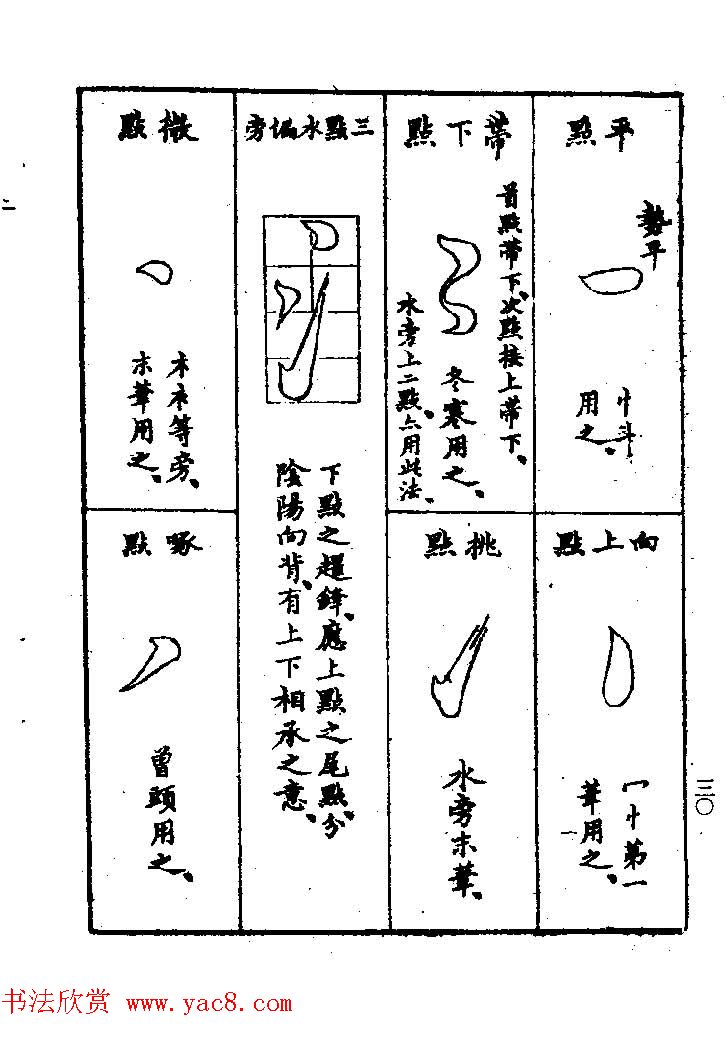 平點
勢平
忄斗
用之、
向上點
宀忄第一
筆用之、
帶下點
首點帶下、次點接上帶下、
冬寒用之、
水旁上二點、亦用此法、
挑點
水旁末筆、
三點水偏旁
下點之趯鋒、應上點之尾、點分
陰陽向背、有上下相承之意、
微點
木衣等旁、
末筆用之、
啄點
曾頭用之、
三〇
书法欣赏 www.yac8.com